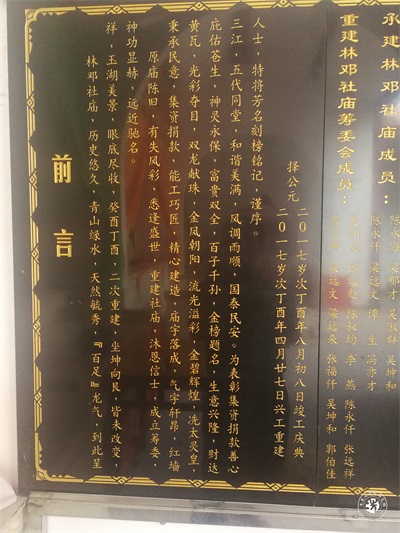 前言
林邓社庙，历史悠久，青山绿水，天然毓秀，『百足』龙气，到此呈
祥，玉湖美景，眼底尽收，癸酉丁酉，二次重建，坐坤向艮，皆未改变，
神功显赫，远近驰名。
原庙陈旧，有失风彩，悉逢盛世，重建社庙，沐恩信士，成立筹委，
秉承民意，集资捐款，能工巧匠，精心建造，庙宇落成，气宇轩昂，红墙
黄瓦，光彩夺目，双龙献珠，金凤朝阳，流光溢彩，金碧辉煌，冼太灵皇，
庇佑苍生，神灵永保，富贵双全，百子千孙，金榜题名，生意兴隆，财达
三江，五代同堂，和谐美满，风调雨顺，国泰民安。为表彰集资捐款善心
人士，特将芳名刻榜铭记，谨序。
择公元
二0一七岁次丁酉年八月初八日竣工庆典
二0一七岁次丁酉年四月廿七日兴工重建
重建林邓社庙筹委会成员：
梁远文 陈权均 李燕 陈永仟 张远祥
梁远来 张福仟 吴坤和 郭伯佳
承建林邓社庙成员：
陈永仟 梁远文 谭生 冯亦才
吴坤和